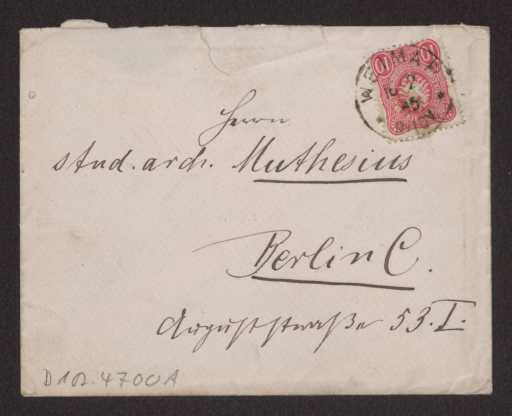 10 10
WEIMAR
Herrn
stud. arch. Muthesius
Berlin C.
Auguststraße 53. I.
D 102. 4700 A